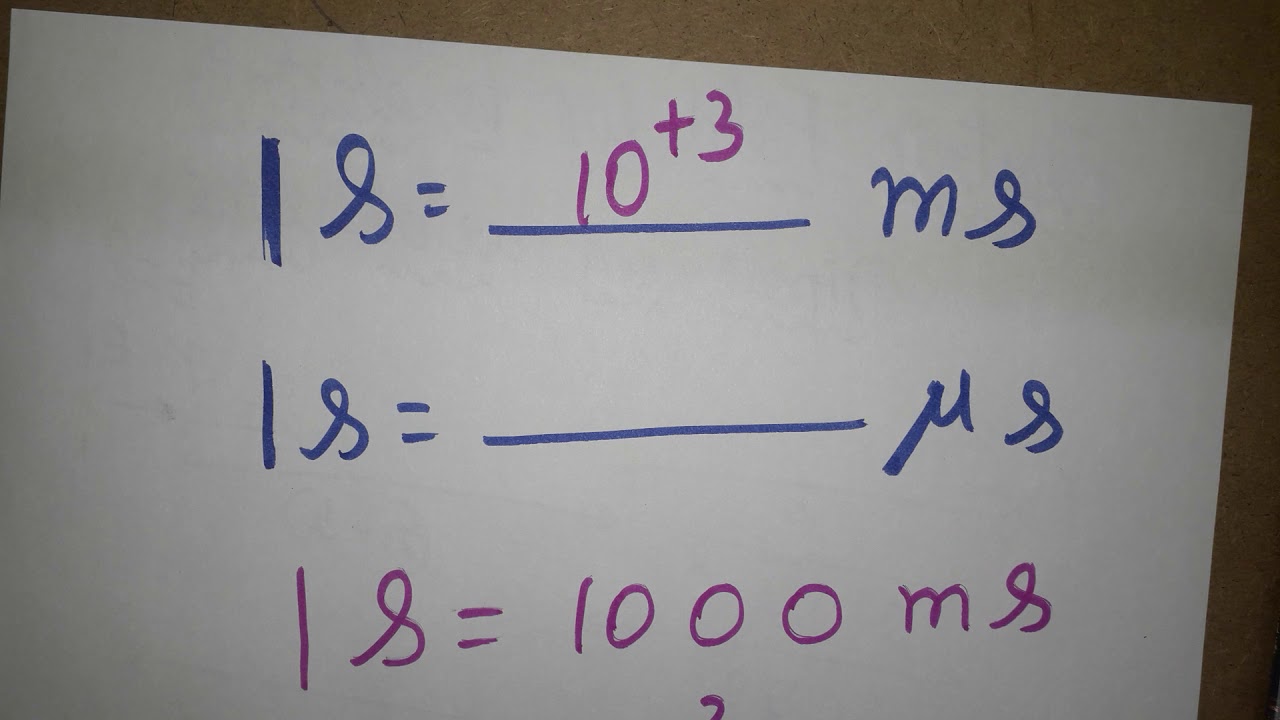 1 s = 10⁺³ ms
1 s = ______ μs
1 s = 1000 ms